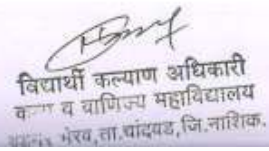 विद्यार्थी कल्याण अधिकारी
व वाणिज्य महाविद्यालय
भैरव,ता.चांदवड,जि.नाशिक.